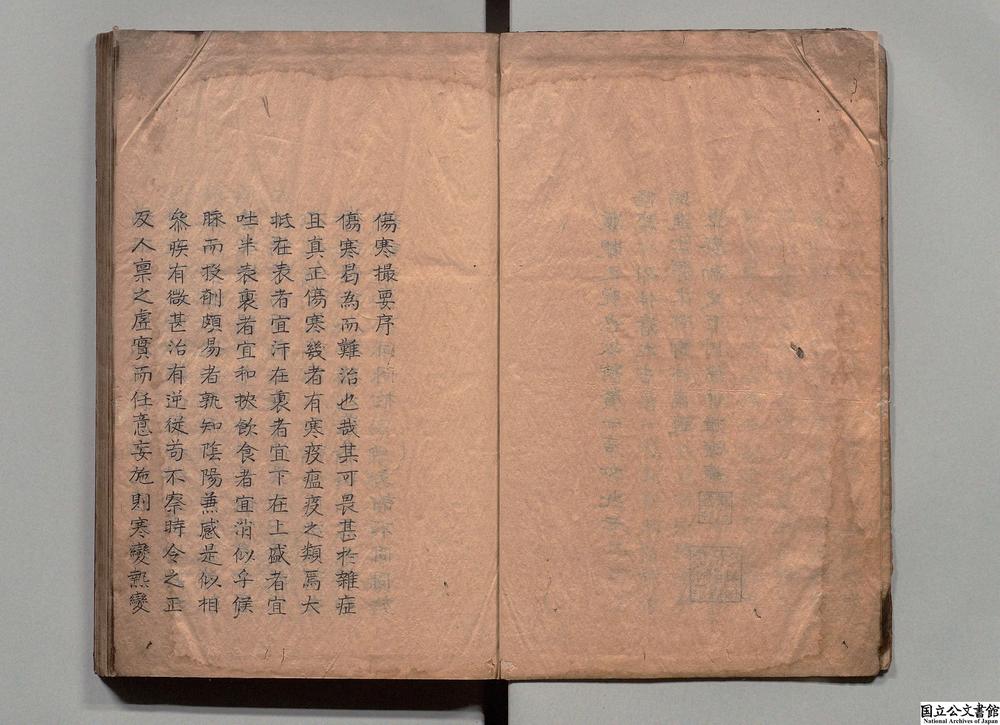 傷寒撮要序
傷寒曷為而難治也哉其可畏甚扵雜症
且真正傷寒幾者有寒疫瘟疫之類焉大
抵在表者宜汗在裏者宜下在上盛者宜
吐半表裏者宜和挾飲食者宜消似乎候
脉而投劑頗易者孰知陰陽兼感是似相
叅疾有微甚治有逆從苟不察時令之正
反人禀之虛實而任意妄施則寒變熱變
国立公文書館
National Archives of Japan